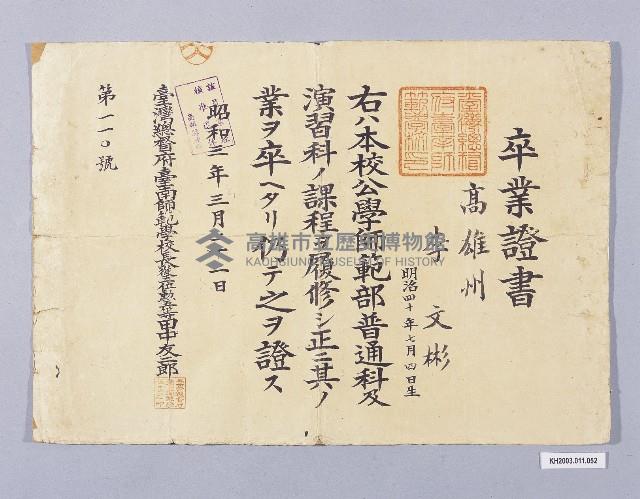 卒業證書
高雄州
李文彬
明治四十年七月四日生
右ハ本校公學師範部普通科及
演習科ノ課程ヲ履修シ正ニ其ノ
業ヲ卒ヘタリ仍テ之ヲ證ス
昭和三年三月二十二日
臺灣總督府臺南師範學校長從五位勳五等田中友二郎
第一一〇號
高雄市立歷史博物館
KAOHSIUNG MUSEUM OF HISTORY
KH2003.011.052